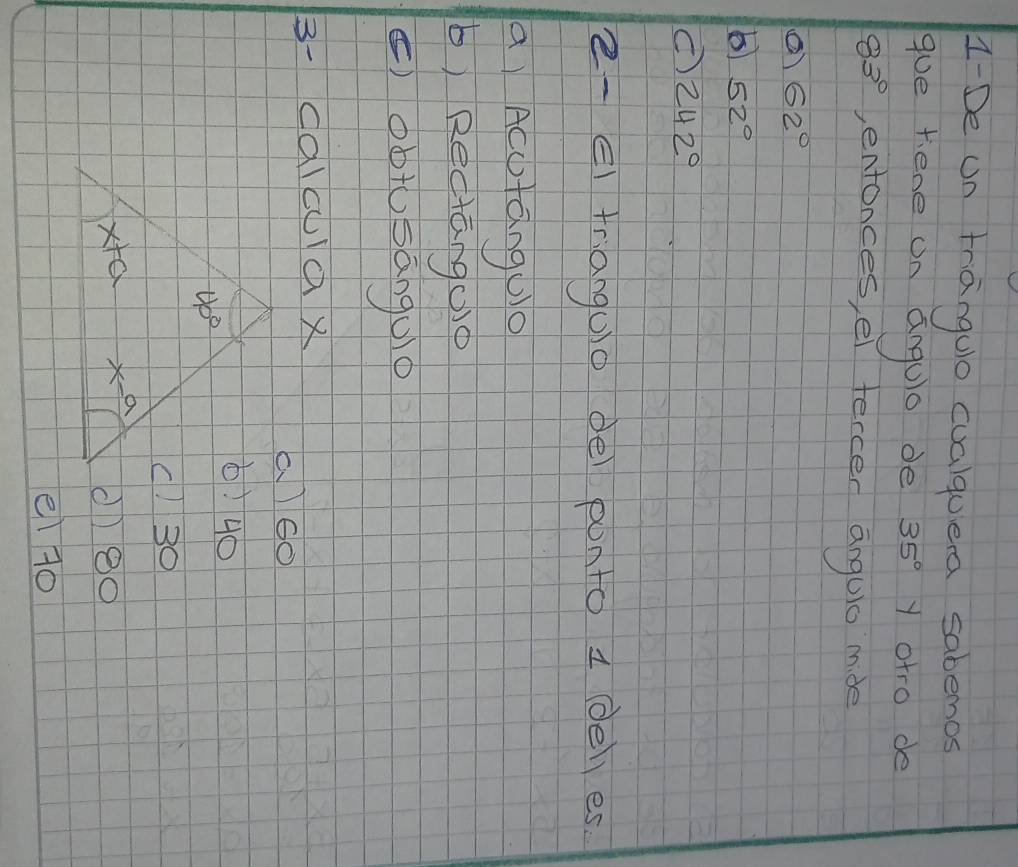 1-De un triángulo cualquiera sabemos
que tiene un ángulo de 35° y otro de
83°, entonces, el tercer ángulo mide
a) 62°
b) 52°
c) 242°
2- El triangulo del punto 1 (del) es.
a) Acutángulo
b) Rectángulo
c) Obtusángulo
3- Calcula x
40°
x+a
x-a
a) 60
b) 40
c) 30
d) 80
e) 70